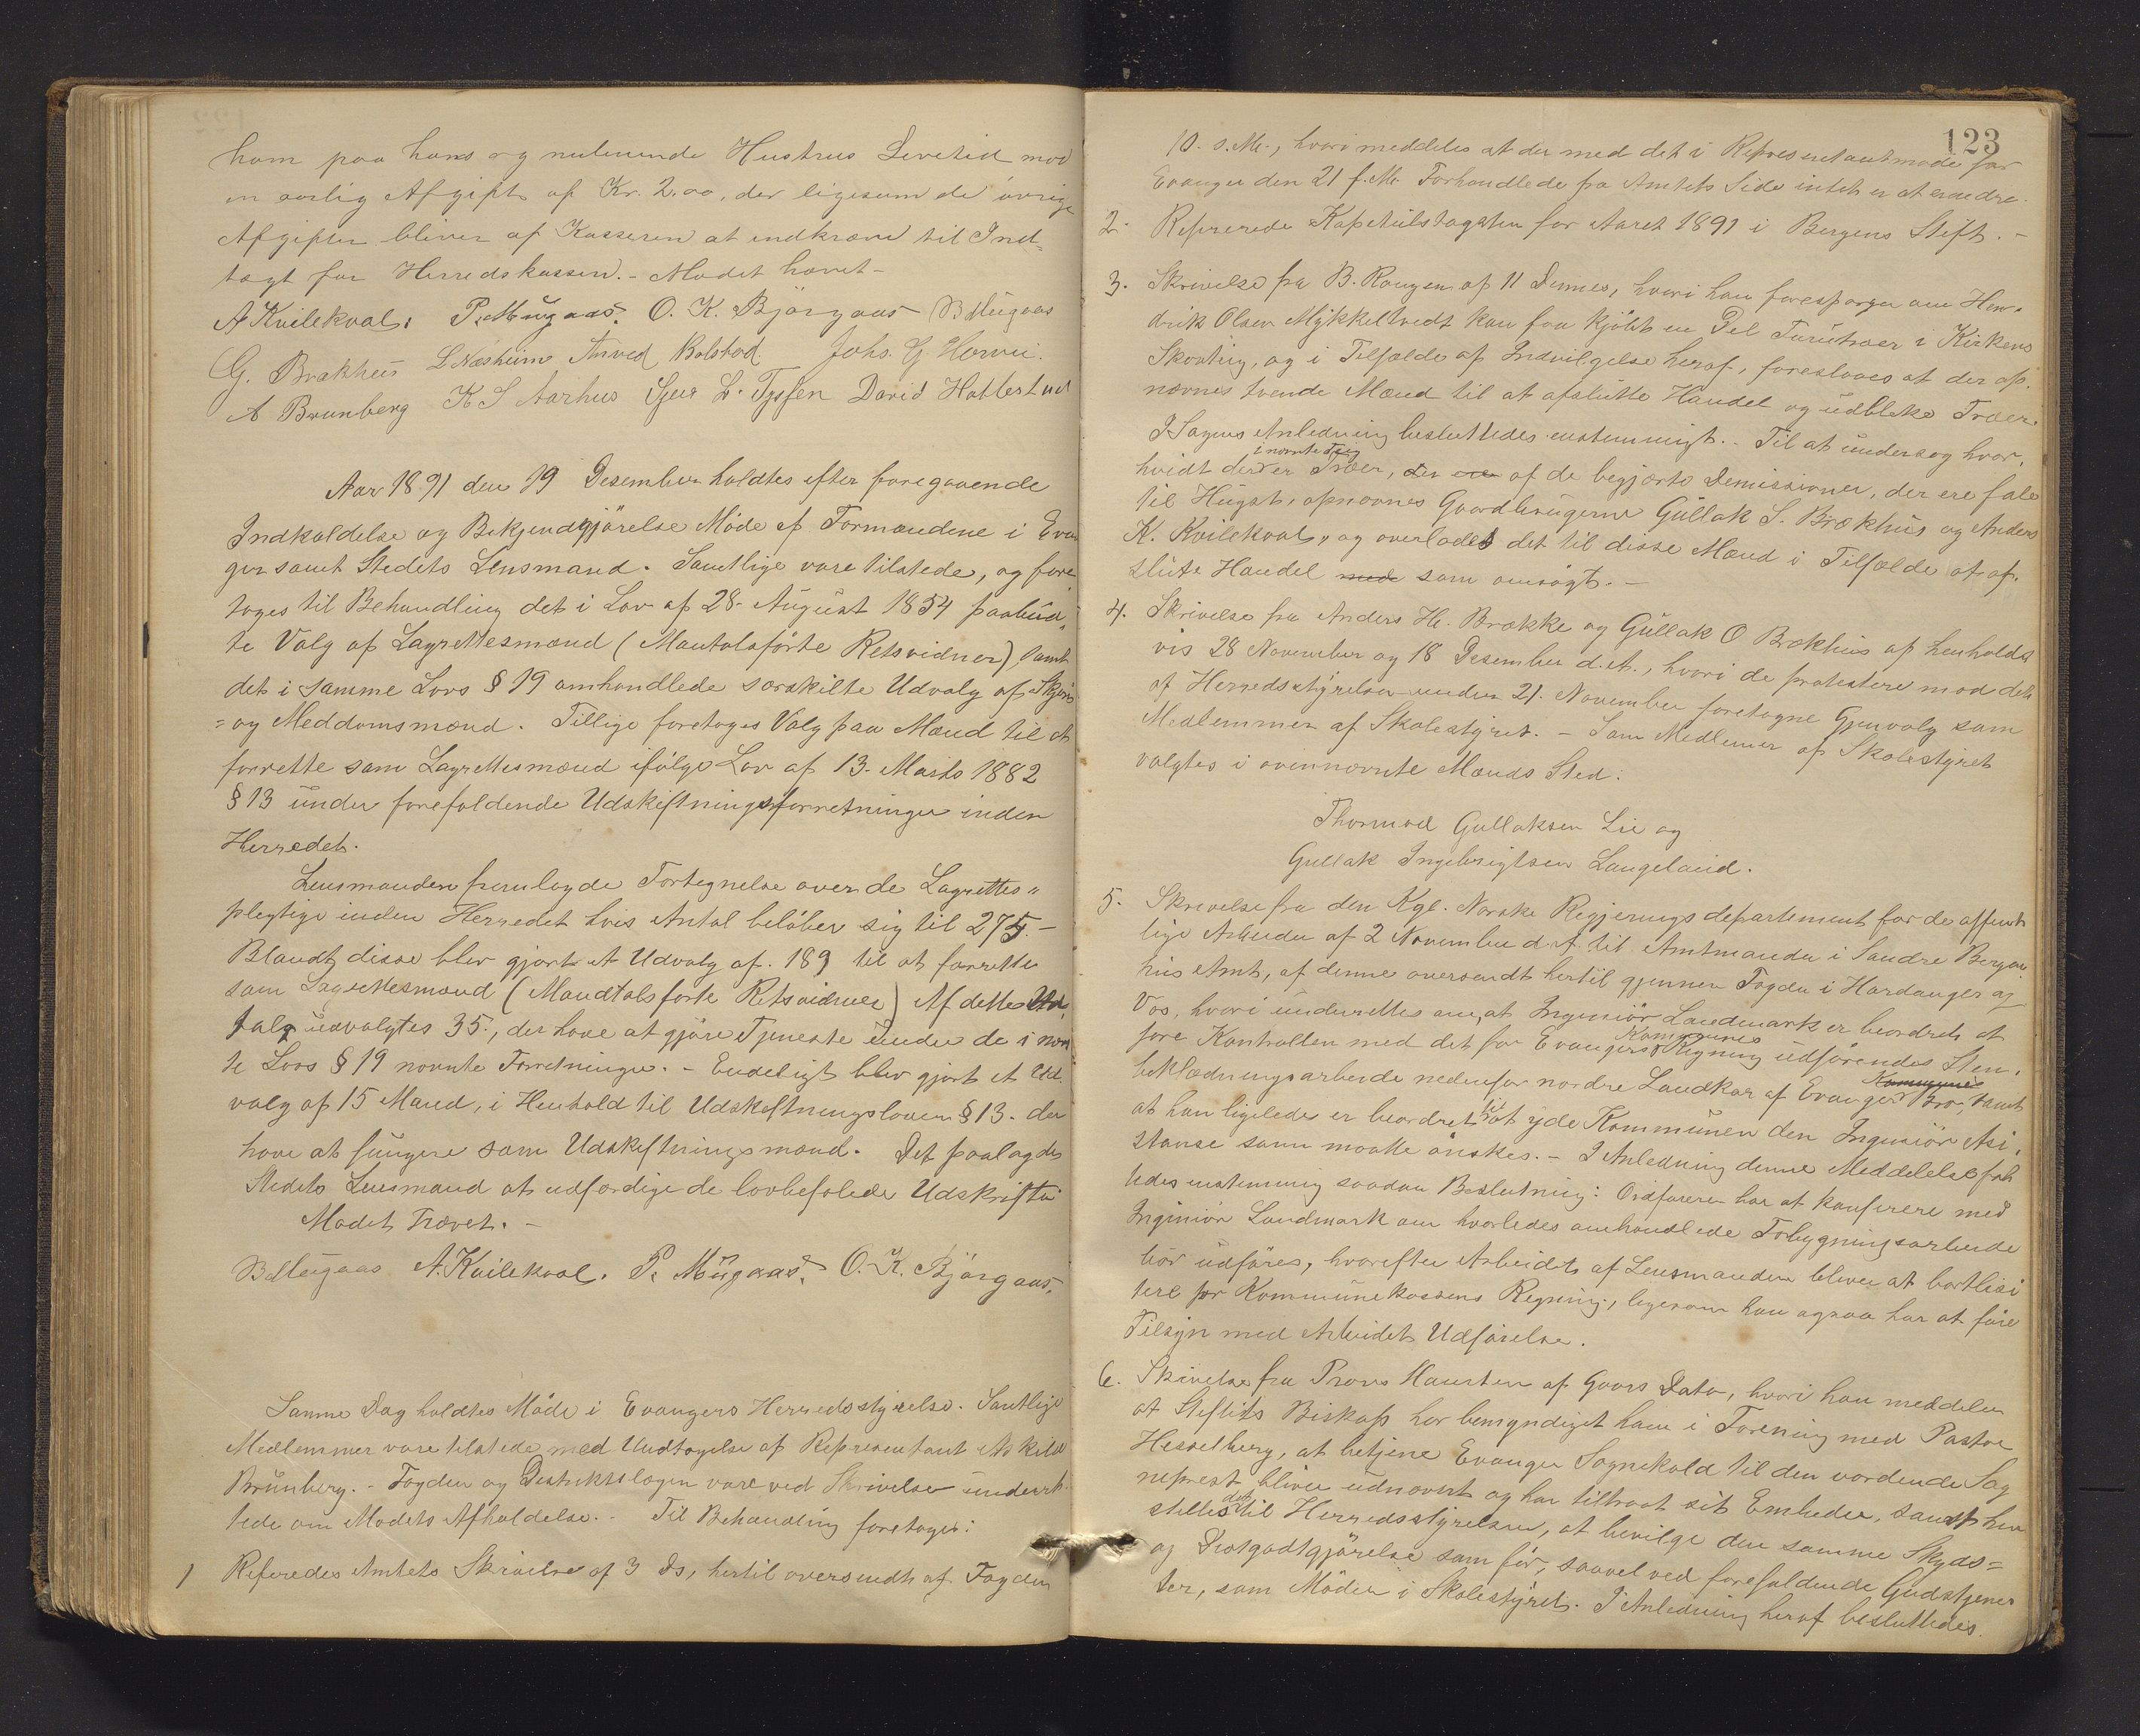 ham paa hans og nulevende Hustrus Levetid mod
en aarlig Afgift af Kr. 2.00, der ligesom de øvrige
Afgifter bliver af Kasseren at indkræve til Ind-
tægt for Herredskassen. - Mødet hævet -
A Kvilekval. P. Mügaas. O. K. Björgaas B Mügaas
G. Brakhus L Næsheim Anved Bolstad. Johs. G Horvei.
A Brunberg K S Aarhus Sjur L. Tyssen David Hattestad
Aar 1891 den 19 Desember holdtes efter foregaaende
Indkaldelse og Bekjendtgjörelse Möde af Formændene i Evan
ger samt Stedets Lensmand. Samtlige vare tilstede, og fore
toges til Behandling det i Lov af 28. August 1854 paabud-
te Valg af Lagrettesmænd (Mantalsförte Retsvidner) samt
det i samme Lovs § 19 omhandlede særskilte Udvalg af Skjöns
= og Meddomsmænd. Tillige foretoges Valg paa Mænd til at
forrette som Lagrettesmænd ifölge Lov af 13. Marts 1882
§ 13 under forefaldende Udskiftningsforretninger inden
Herredet.
Lensmanden fremlagde Fortegnelse over de Lagrettes-
plegtige inden Herredet hvis Antal belöber sig til 275. -
Blandt disse blev gjort et Udvalg af 189 til at forrette
som Lagrettesmænd (Mandtalsförte Retsvidner) Af dette Ud,
valg udvalgtes 35., der have at gjöre Tjeneste under de i nævn
te Lovs § 19 nævnte Forretninger. - Endeligt blev gjort et Ud.
valg af 15 Mænd, i Henhold til Udskiftningsloven § 13. der
have at fungere som Udskiftningsmænd. Det paalagdes
Stedets Lensmand at udfærdige de lovbefalede Udskrifter
Mødet Hævet. -
B Mügaas A. Kvilekval. P. Mügaas. O. K. Björgaas.
Samme Dag holdtes Møde i Evangers Herredsstyrelse. Samtlige
Medlemmer vare tilstede med Undtagelse af Representant Askild
Brunberg. - Fogden og Distriktslægen vare ved Skrivelse underret
tede om Mødets Afholdelse. - Til Behandling foretoges:
1 Referedes Amtets Skrivelse af 3 ds, hertil oversendt af Fogden
123
10. s. M., hvori meddeles at der med det i Representantmøde for
Evanger den 21 f. M. Forhandlede fra Amtets Side intet er at erindre.
2. Refererede Kapetülstagsten for Aaret 1891 i Bergens Stift. -
3. Skrivelse fra B. Rongen af 11 Dennes, hvori han foresporger om Hen-
drik Olsen Mykkeltvedt kan faa kjöbt en Del Furutræer i Kirkens
Skovteig, og i Tilfælde af Indvilgelse heraf, foreslaaes at der op.
nævnes tvende Mænd til at afslutte Handel og udbleke Træer.
I Sagens Anledning besluttedes enstemmigt. - Til at undersøg hvor,
i nævnte Teig
hvidt der er Træer, der ere af de begjærte Demissioner, der ere fale
til Hugst, opnævnes Gaardbrugerne Gullak S. Brækhus og Anders
K. Kvilekval, og overlades det til disse Mænd i Tilfælde at af-
slute Handel med som ansögt. -
4. Skrivelse fra Anders H. Brække og Gullak O Brækhus af henholds
vis 28 November og 18 Desember d. A., hvori de protestere mod det
af Herredsstyrelsen under 21. November foretagne Gjenvalg som
Medlemmer af Skolestyret. - Som Medlemer af Skolestyret
valgtes i ovennævnte Mænds Sted:
Thormod Gullaksen Lie og
Gullak Ingebrigtsen Langeland.
5. Skrevelse fra den Kgl. Norske Regjerings departement for de offent
lige Arbeider af 2 November d. A. til Amtmanden i Søndre Bergen
hus Amt, af denne oversendt hertil gjennem Fogden i Hardanger og
Vos, hvori underrettes om, at Ingeniör Landmark er beordret at
Kommunes
føre Kontrollen med det for Evangers Regning udförendes Sten,
Kommunes
beklædningsarbeide nedenfor nordre Landkar af Evanger Bro, samt
at han ligeledes er beordret til at yde Kommunen den Ingeniör Asi,
stanse som maatte önskes. - I Anledning denne Meddelelse fat
tedes enstemmig saadan Beslutning: Ordføreren har at konferere med
Ingeniör Landmark om hvorledes omhandlede Forbygningsarbeide
bör udföres, hvorefter Arbeidet af Lensmanden bliver at bortlisi
tere for Kommunekassens Regning, ligesom han ogsaa har at före
Tilsyn med Arbeidets Udførelse.
6. Skivelse fra Provs Maurten af Gaars Dato, hvori han meddeler
at Steftets Biskop har bemyndiget ham i Forening med Pastor
Hesselberg, at betjene Evanger Sognekald til den vordende Sog
neprest bliver udnævnt og har tiltraat sit Embede, samt hen
stilles det til Herredsstyrelsen, at bevilge den samme Skyds=
og Diætgodtgjörelse som för, saavel ved forefaldende Gudstjenes
ter, som Möder i Skolestyret. I Anledning heraf besluttedes.